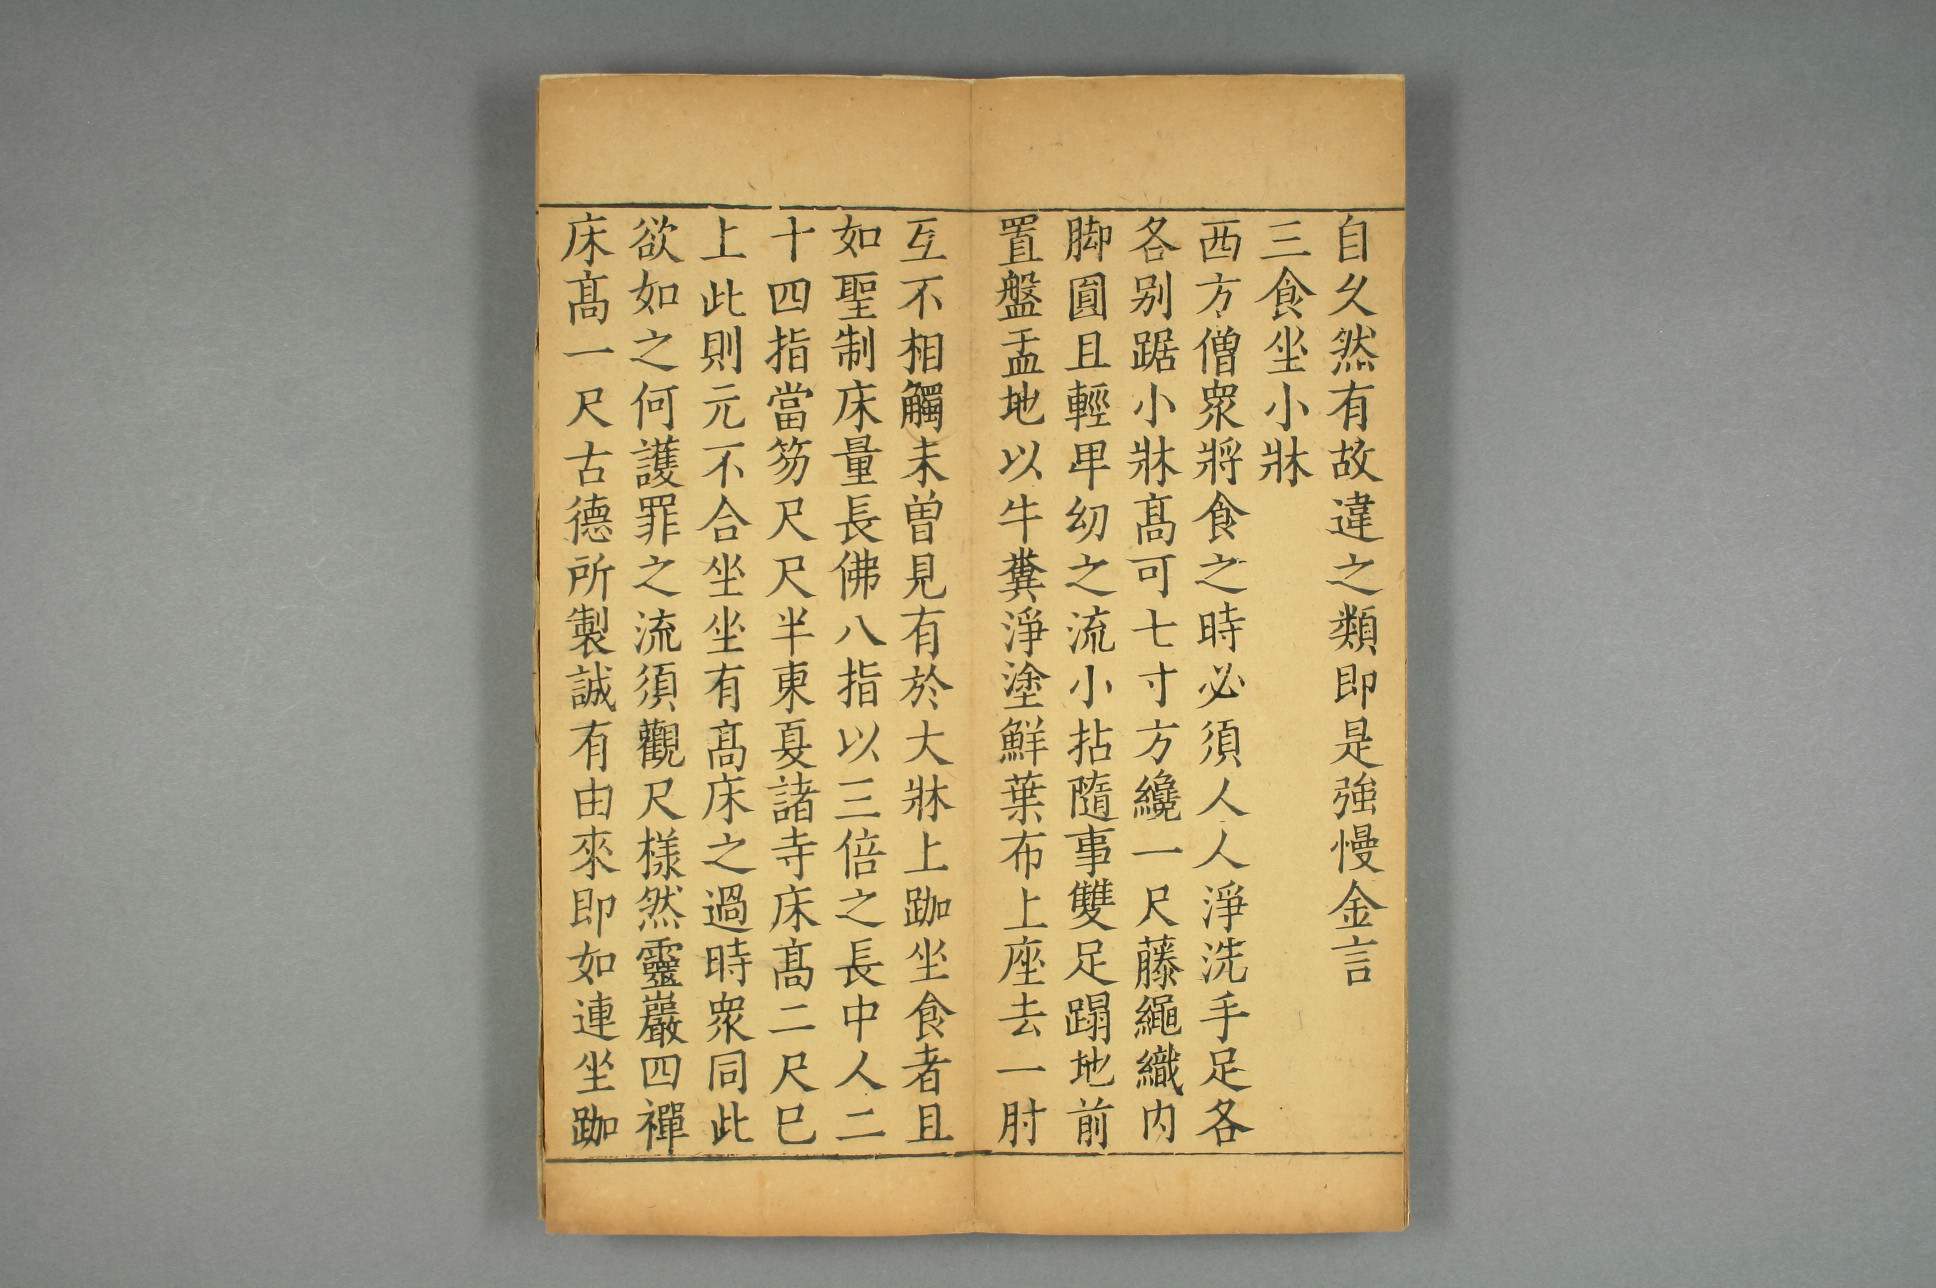 自久然有故違之類即是強慢金言
三食坐小牀
西方僧衆將食之時必須人人淨洗手足各
各別踞小牀髙可七寸方纔一尺藤繩織內
脚圓且輕卑幼之流小拈隨事雙足蹋地前
置盤盂地以牛糞淨塗鮮葉布上座去一肘
互不相觸未曽見有於大牀上跏坐食者且
如聖制床量長佛八指以三倍之長中人二
十四指當笏尺尺半東夏諸寺床髙二尺巳
上此則元不合坐坐有髙床之過時衆同此
欲如之何護罪之流須觀尺様然靈巖四禪
床髙一尺古德所製誠有由來即如連坐跏